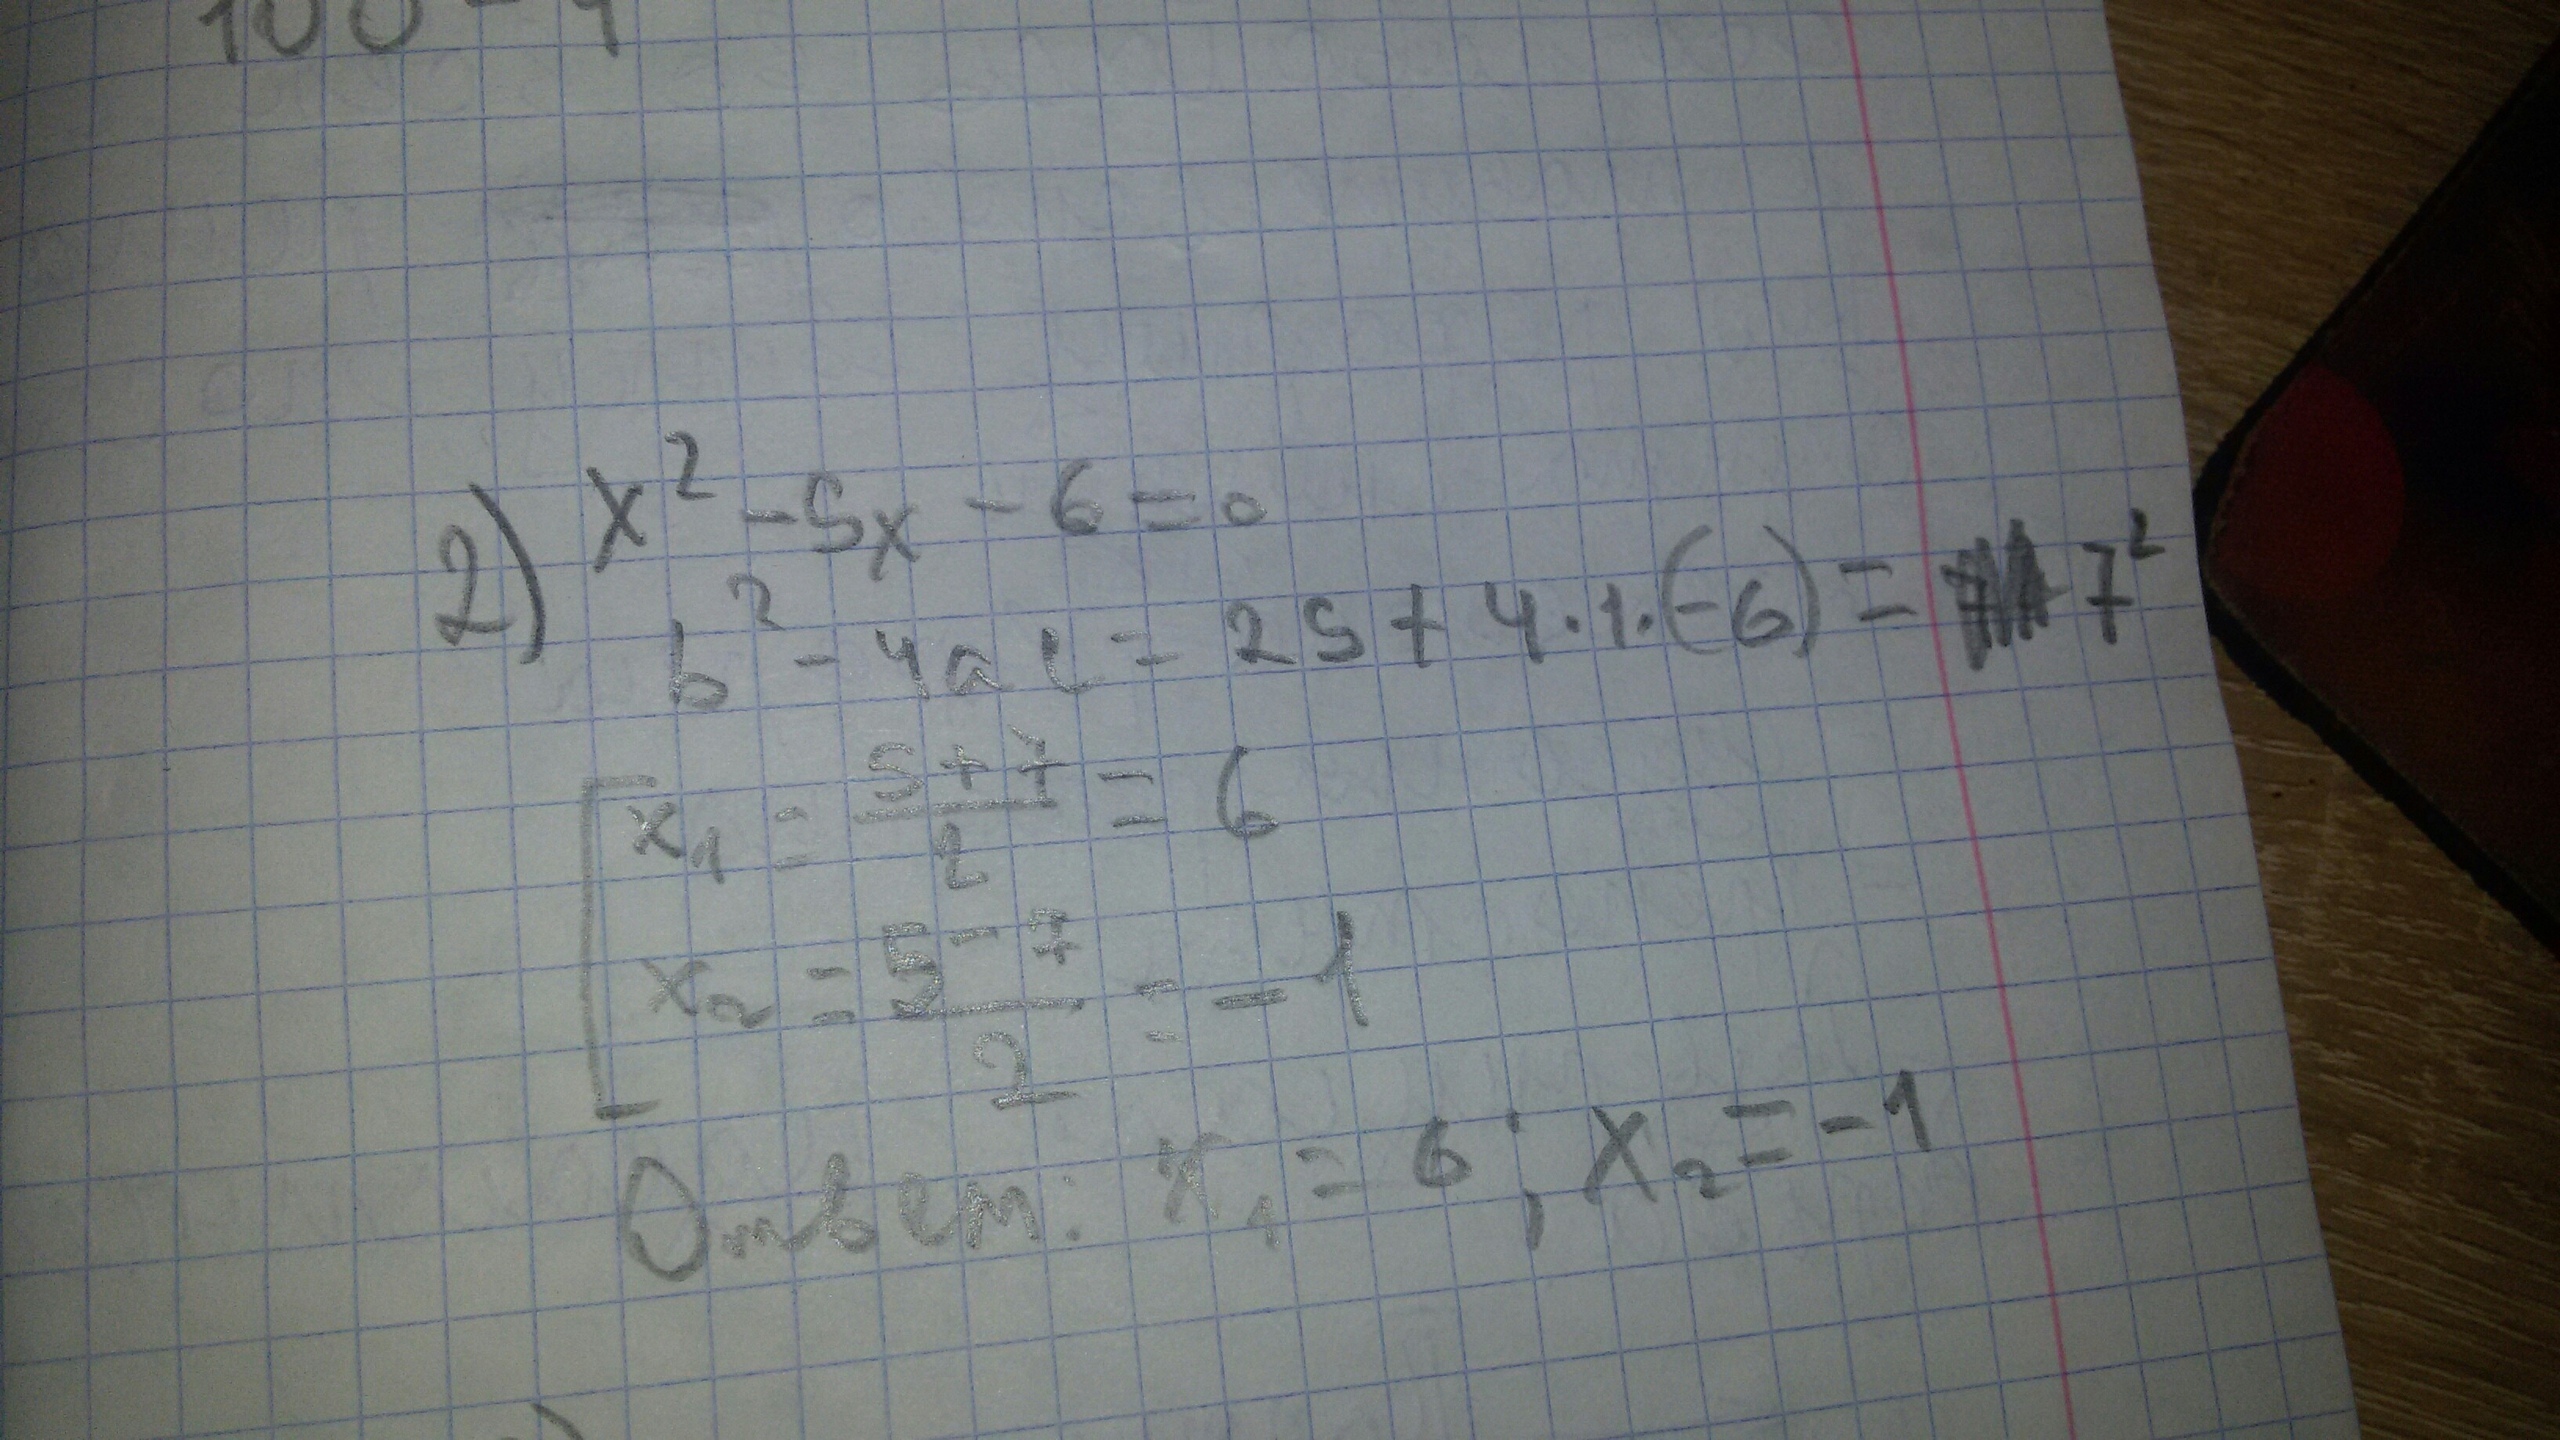 100 - 4
2) x² - 5x - 6 = 0
b² - 4ac = 25 + 4 · 1 · (-6) = 7²
x₁ = (5 + 7)/2 = 6
x₂ = (5 - 7)/2 = -1
Ответ: x₁ = 6 ; x₂ = -1